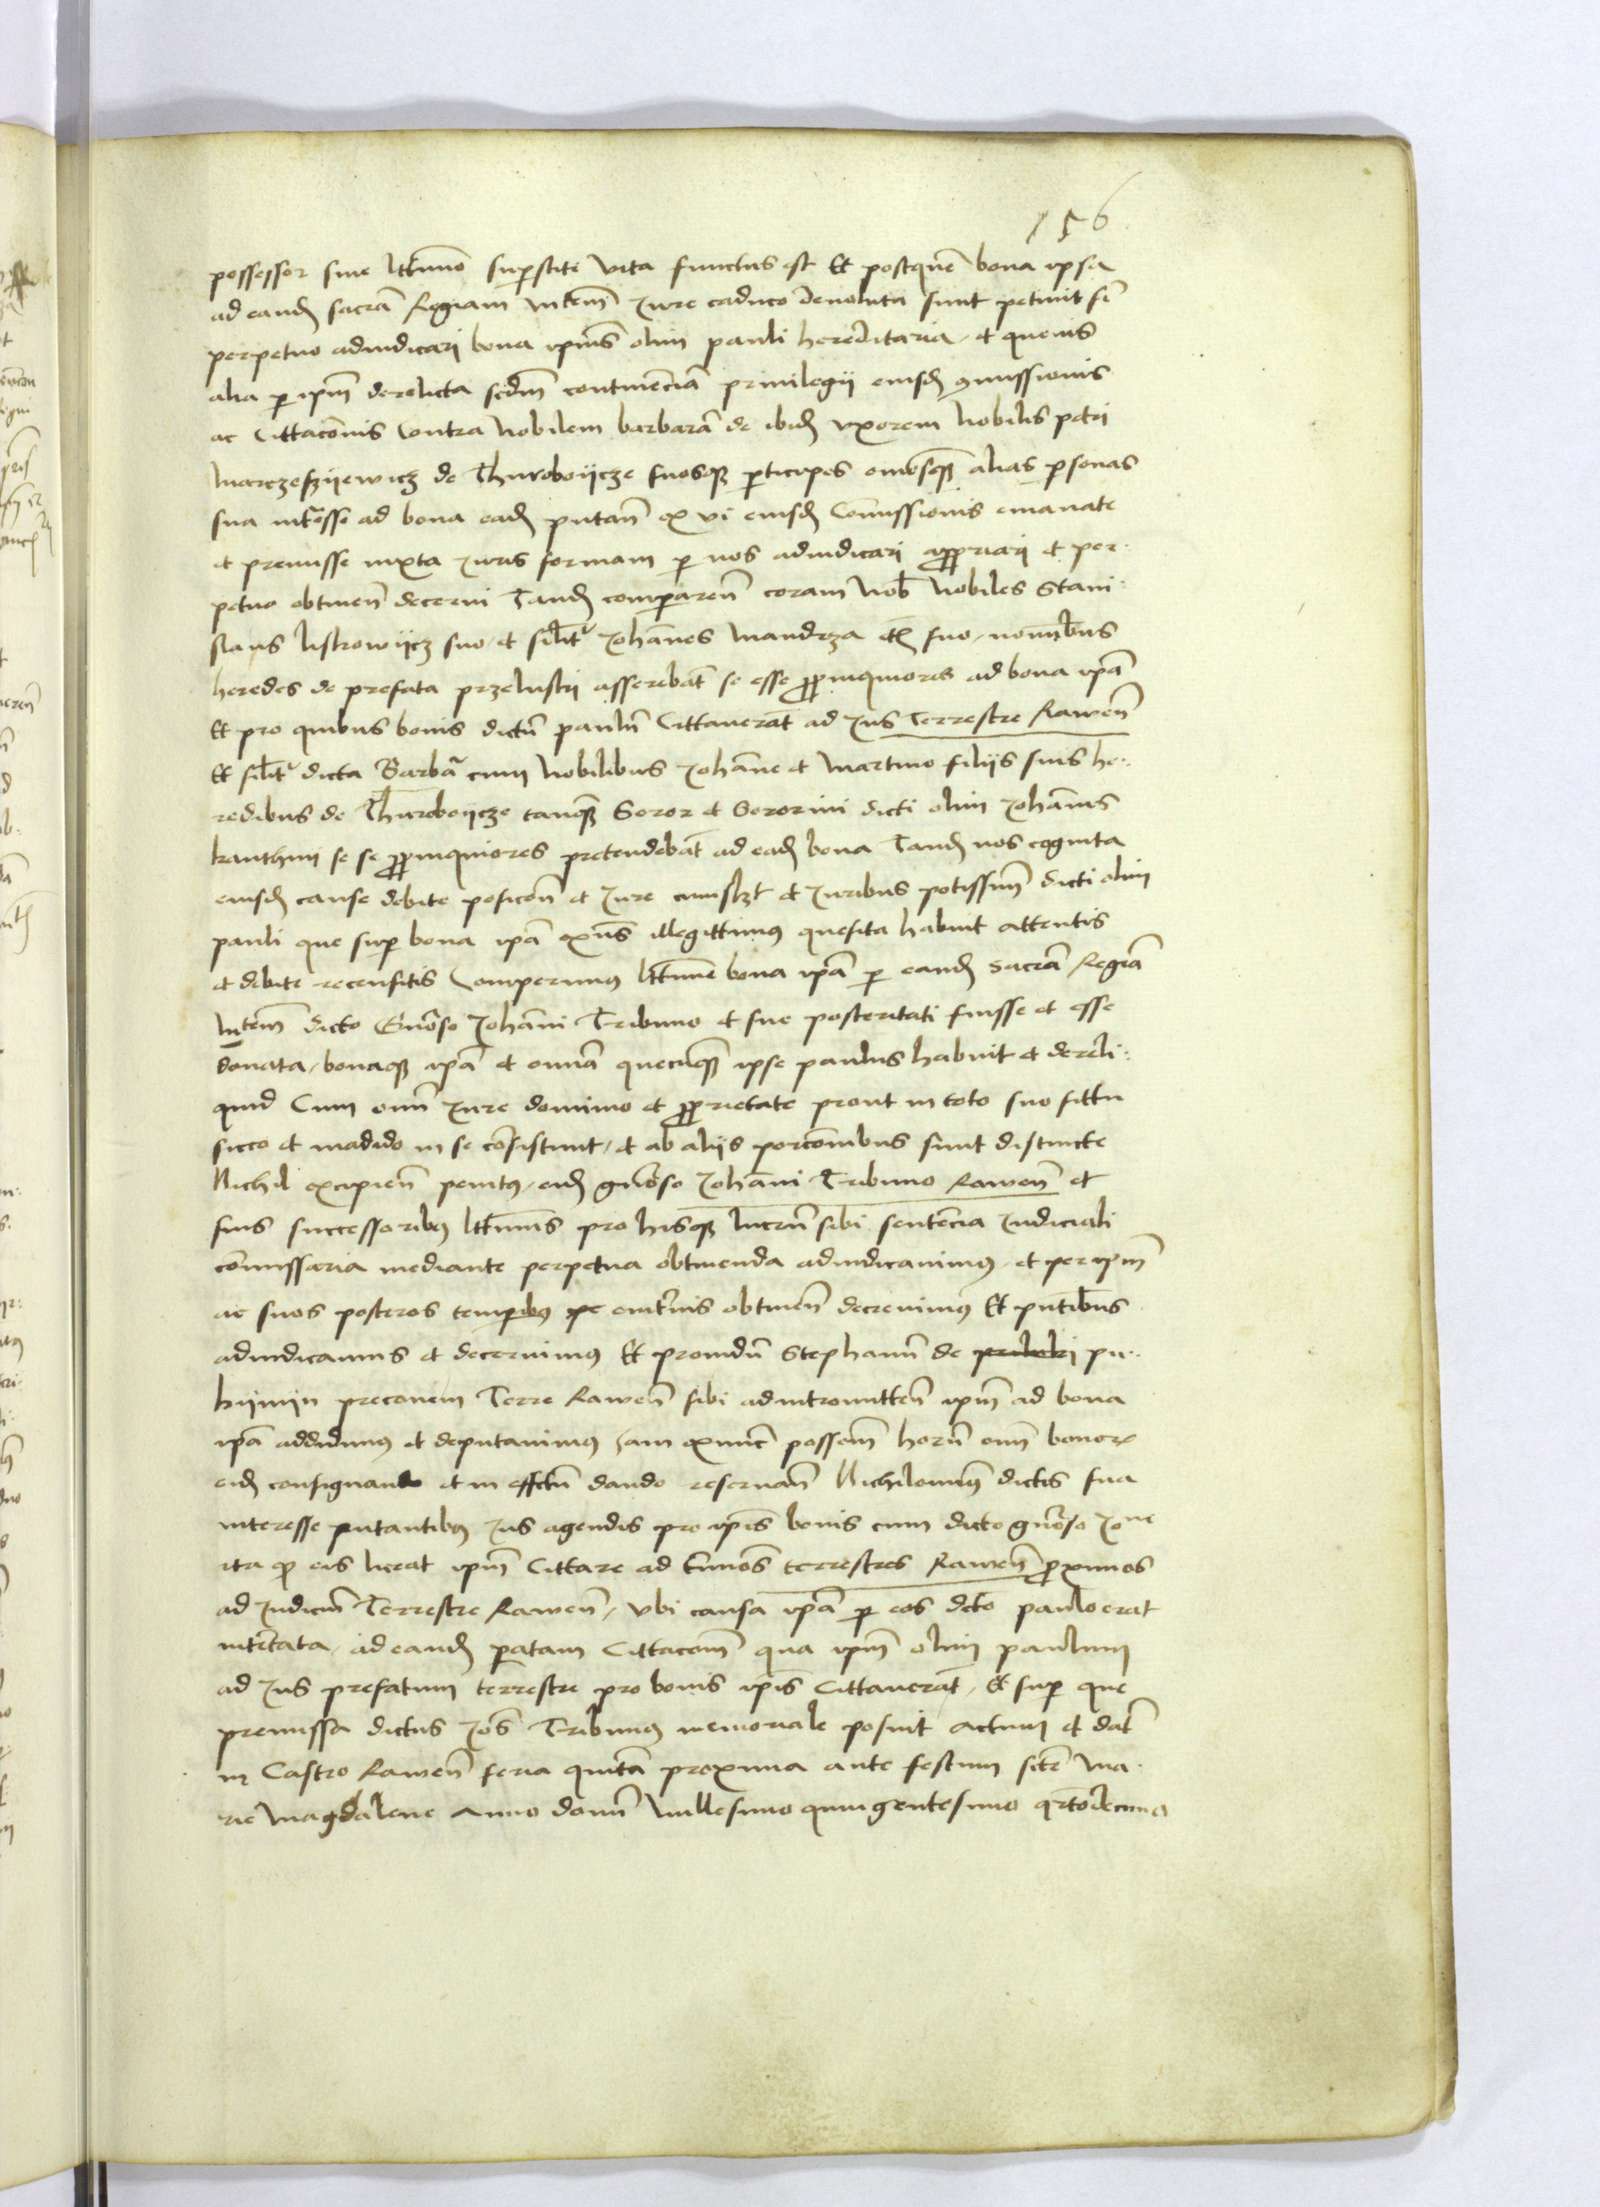 156
possessor sine lttimo superstite vita functus est Et postquem bona ipsa
ad eandem sacram Regiam Mtem Iure caduco devoluta sunt petiuit sibi
perpetuo adiudicari bona ipsius olim pauli hereditaria et quevis
alia per ipsum derelicta secundum continenciam priuilegii eiusdem comissionis
ac Cittacionis Contra Nobilem barbaram de ibidem vxorem Nobilis petri
de Thuroboijcze suosque participes omnesque alias personas
sua interesse ad bona eadem putan ex vi eiusdem Comissionis emanate
et premisse iuxta Iuris formam per nos adiudicari appropriari et per
petuo obtinen decerni Tandem comparen coram Nob Nobiles Stani
slaus liskowijcz suo et similiter Iohannes Mandrza etiam suo nominibus
heredes de prefata przeluski asserebant se esse propinquiores ad bona ipsa
Et pro quibus bonis dictum paulum Cittauerant ad Ius Terrestre Rawen
Et similiter dicta Barbara cum Nobilibus Iohanne et Martino filijs suis he
redibus de Thuroboijcze tanquam Soror et Sororini dicti olim Iohannis
se se propinquiores pretendebant ad eadem bona Tandem nos cognita
eiusdem cause debite posicion et Iure cuiuslibet et Iuribus potissimum dicti olim
pauli que super bona ipsa existens illegittimus quesita habuit attentis
et debite recensitis Comperimus lttime bona ipsa per eandem sacram Regiam
Mtem dicto Generoso Iohanni Tribuno et sue posteritati fuisse et esse
donata bonaque ipsa et omnia quecumque ipse paulus habuit et dereli
quid Cum omni Iure dominio et proprietate prout in toto suo sittu
sicco et madido in se consistunt et ab alijs porcionibus sunt distincte
Nichil excipien penitus eidem generoso Iohanni Tribuno Rawen et
suis successoribus lttimis pro hisque lucrum sibi sentencia Iudiciali
comissaria mediante perpetua obtinenda adiudicauimus et per ipsum
ac suos posteros temporibus euiternis obtinen decreuimus Et presentibus
adiudicamus et decernimus Et prouidum Stephanum de pu
kijnijn preconem Terre Rawen sibi ad intromitten ipsum ad bona
ipsa addidimus et deputauimus Iam exnunc possessionem horum omnium bonorum
eidem consignando et in effectum dando reseruan Nichilominus dictis sua
interesse putantibus Ius agendis pro ipsis bonis cum dicto generoso Iohanne
ita quod eis liceat ipsum Cittare ad terminos terrestres Rawen proximos
ad Iudicium Terrestre Rawen vbi causa ipsa per eos dicto paulo erat
intentata ad eandem paratam Cittacionem qua ipsum olim paulum
ad Ius prefatum terrestre pro bonis ipsis Cittauerant Et super que
premissa dictus Iohannes Tribunus memoriale posuit Actum et datum
in Castro Rawen feria quinta proxima ante festum sancte Ma
rie Magdalene Anno domini Millesimo quingentesimo quartodecimo